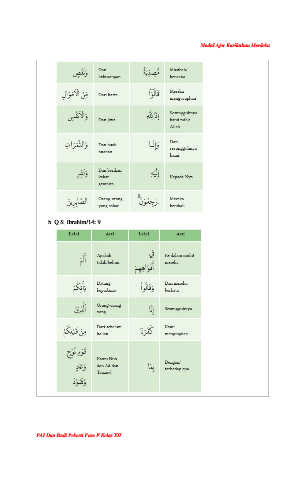 Modul Ajar Kurikulum Merdeka
وَنَقْصٍ Dan kekurangan مُصِيْبَةٌ Musibah/ bencana
مِّنَ الْاَمْوَالِ Dari harta قَالُوْٓا Mereka mengucapkan
وَالْاَنْفُسِ Dan jiwa اِنَّا لِلّٰهِ Sesungguhnya kami milik Allah
وَالثَّمَرٰتِ Dan buah-buahan وَاِنَّآ Dan sesungguhnya kami
وَبَشِّرِ اِلَيْهِ Kepada-Nya
الصّٰبِرِيْنَ Orang-orang yang sabar رٰجِعُوْنَ Mereka kembali
b. Q.S. Ibrahim/14: 9
Lafal Arti Lafal Arti
اَلَمْ Apakah tidak/belum
يَأْتِكُمْ Datang kepadamu وَقَالُوْٓا Dan mereka berkata
الَّذِيْنَ Orang-orang yang اِنَّا Sesungguhnya
مِنْ قَبْلِكُمْ Dari sebelum kalian كَفَرْنَا Kami mengingkari
قَوْمِ نُوْحٍ وَّعَادٍ وَّثَمُوْدَ Kaum Nuh dan Ad dan Tsamud بِمَآ
PAI Dan Budi Pekerti Fase F Kelas XII